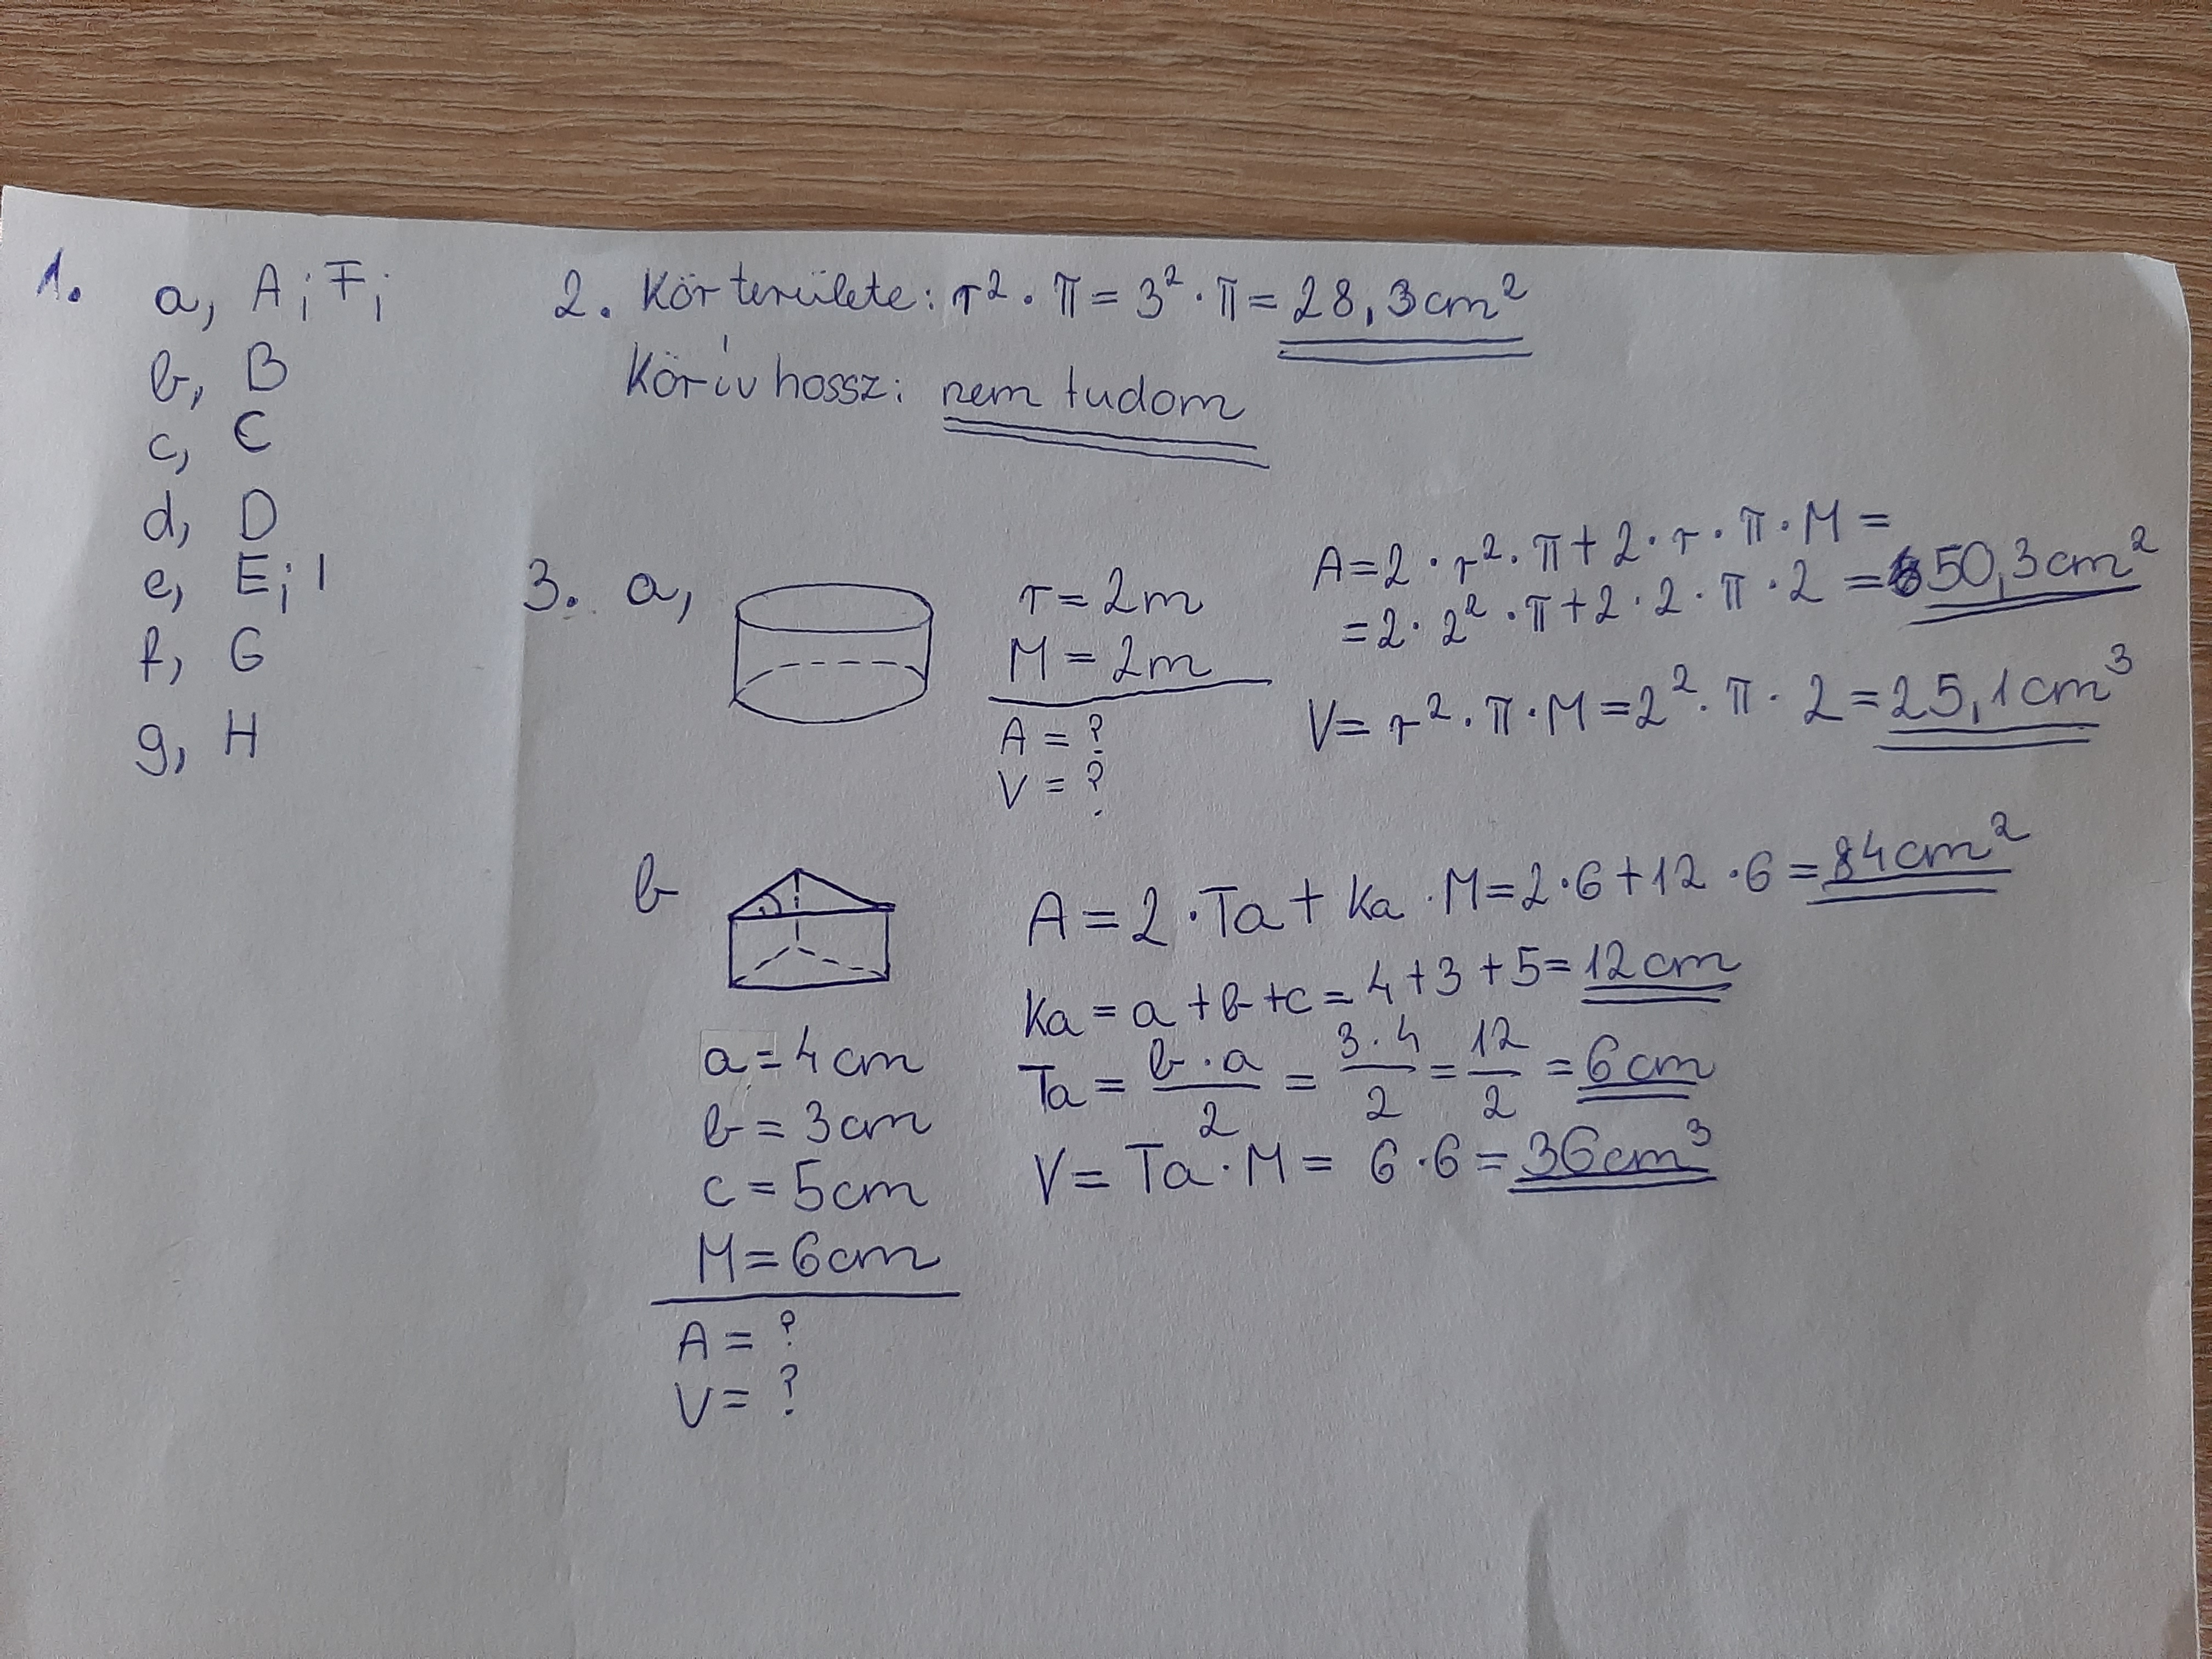 1.
a, A; F;
b, B
c, C
d, D
e, E; I
f, G
g, H
2. Kör területe: r² · π = 3² · π = 28,3cm²
Körív hossz: nem tudom
3. a,
r = 2m
M = 2m
A = ?
V = ?
A = 2 · r² · π + 2 · r · π · M =
= 2 · 2² · π + 2 · 2 · π · 2 = 50,3cm²
V = r² · π · M = 2² · π · 2 = 25,1cm³
b
a = 4cm
b = 3cm
c = 5cm
M = 6cm
A = ?
V = ?
A = 2 · Ta + Ka · M = 2 · 6 + 12 · 6 = 84cm²
Ka = a + b + c = 4 + 3 + 5 = 12cm
Ta = b · a / 2 = 3 · 4 / 2 = 12 / 2 = 6cm
V = Ta · M = 6 · 6 = 36cm³